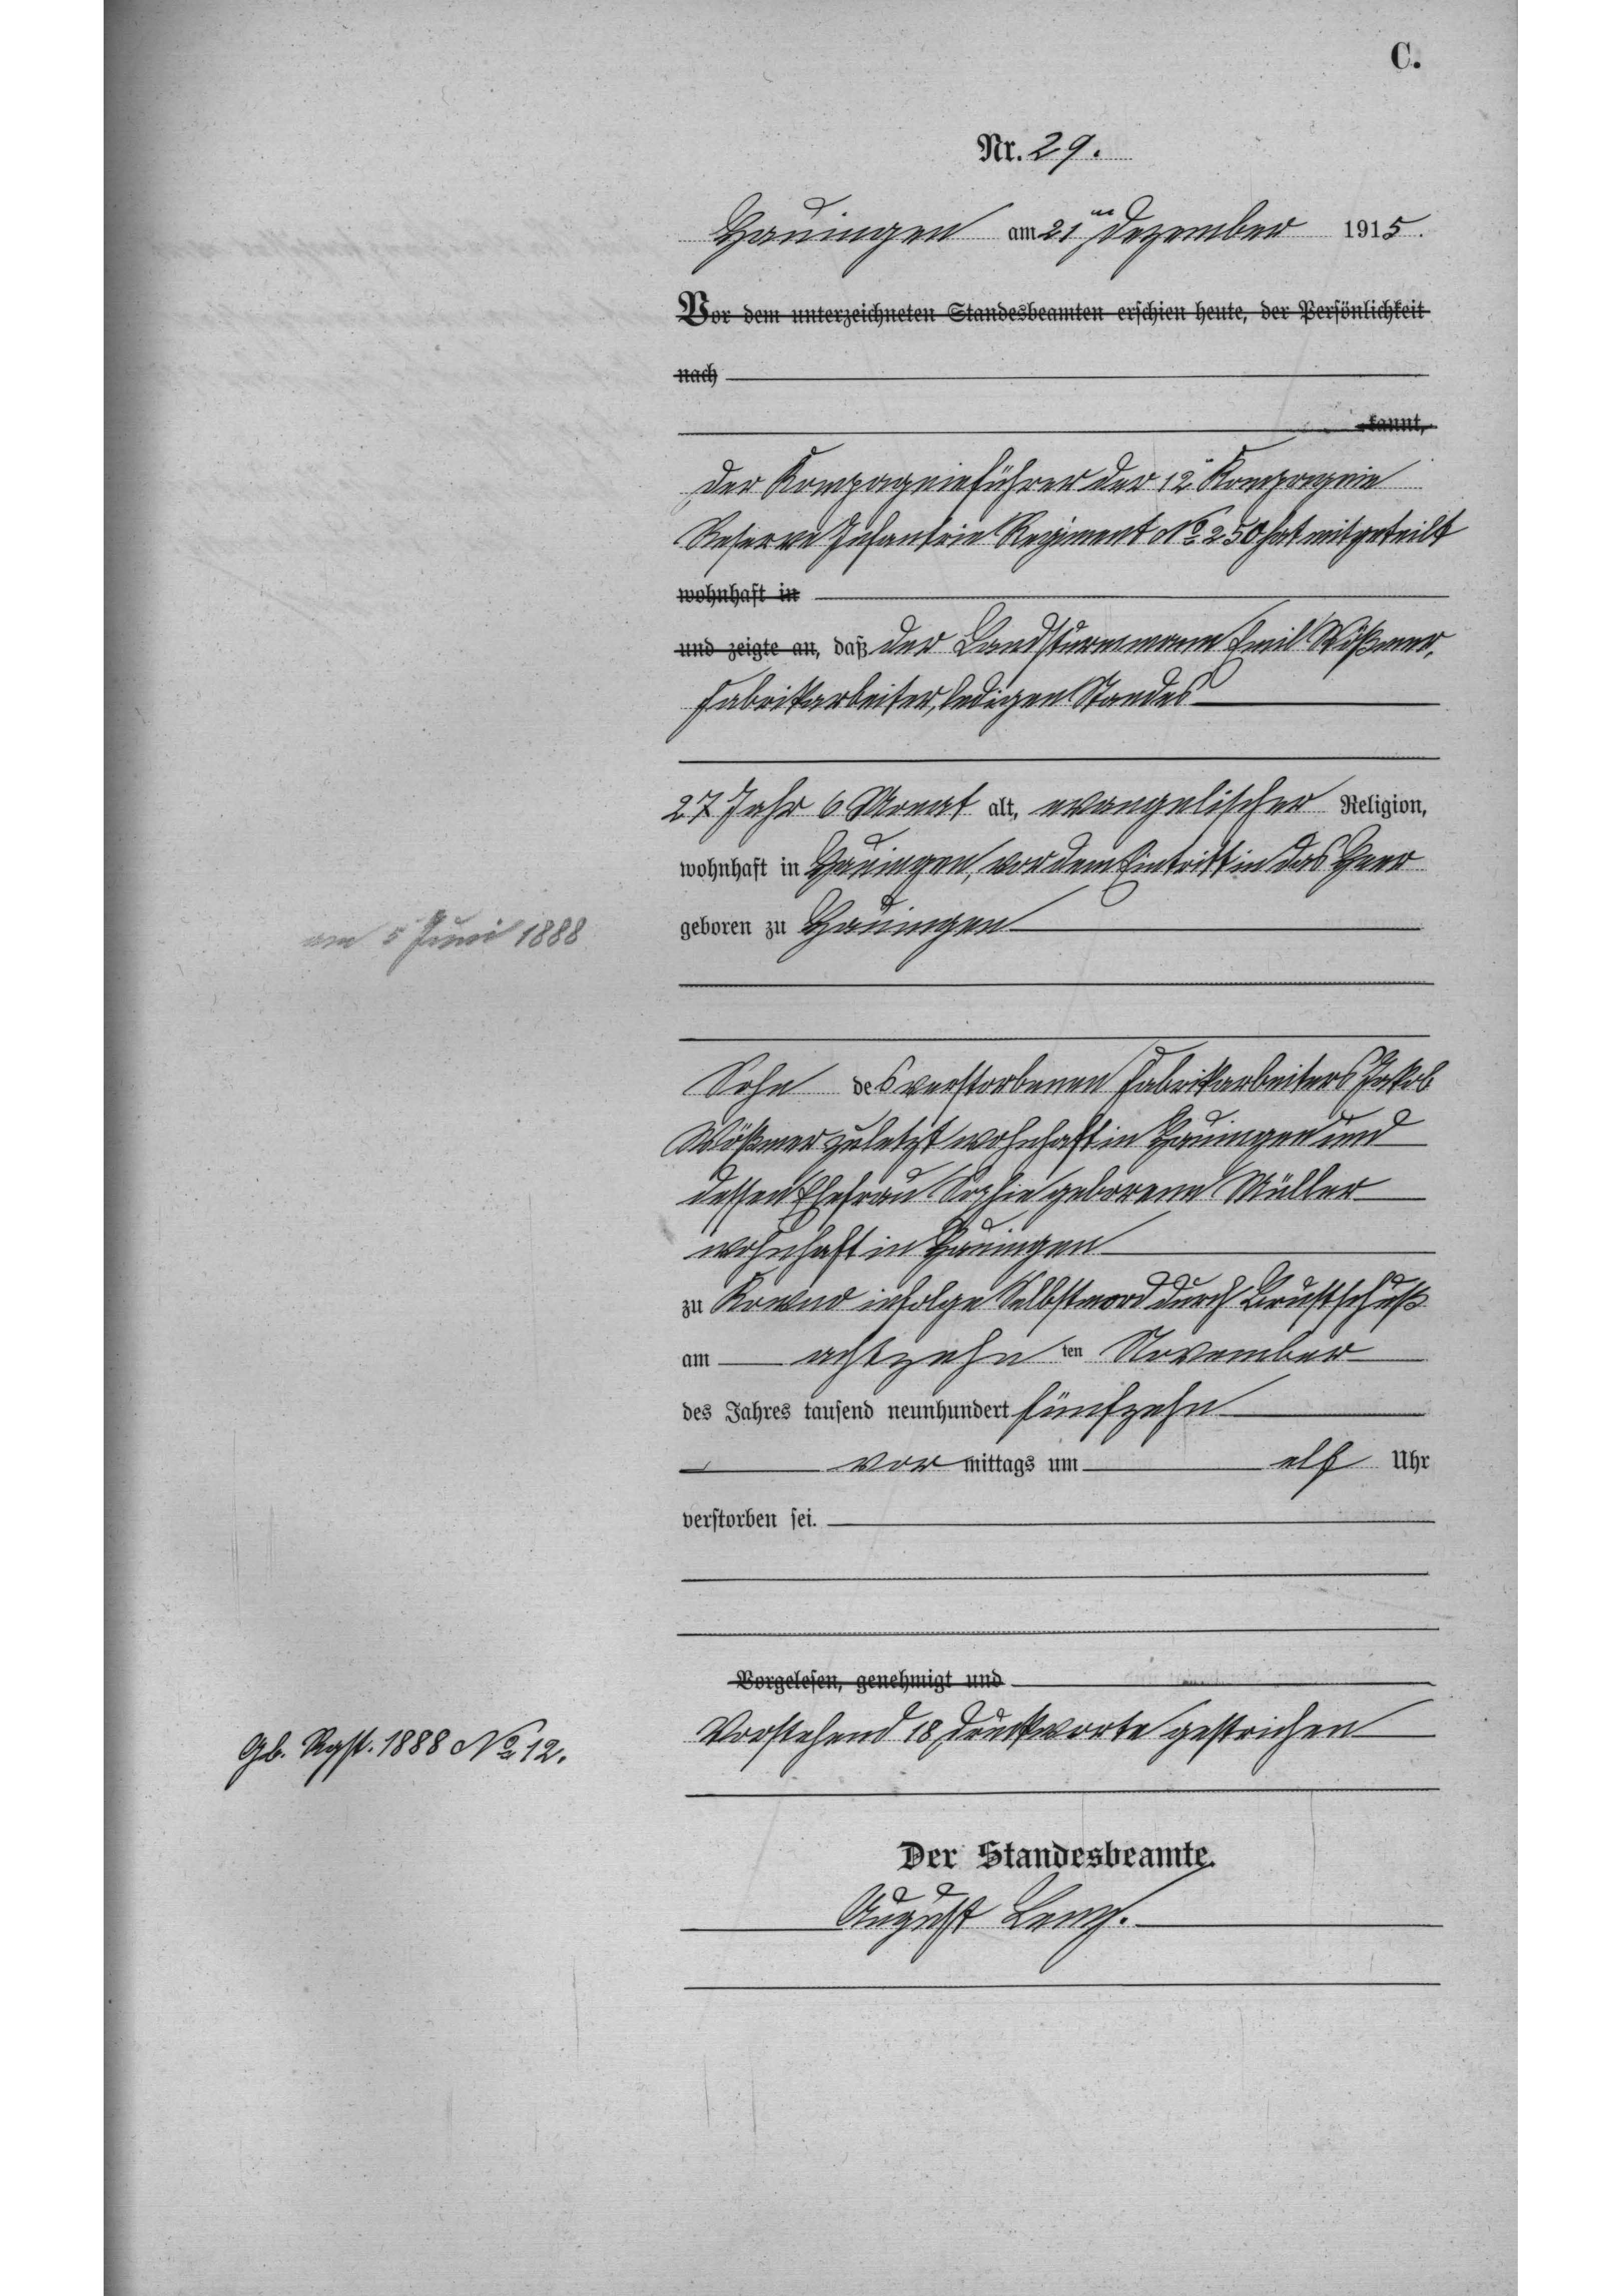 C.
Nr. 29.
Hauingen am 21ten Dezember 1915.
Vor dem unterzeichneten Standesbeamten erschien heute, der Persönlichkeit
nach
kannt,
der Kompagnieführer der 12. Kompagnie
Reserve Infanterie Regiment No 250 hat mitgeteilt
wohnhaft in
und zeigte an, daß der Landsturmmann Emil Wößner,
Fabrikarbeiter, ledigen Standes
27 Jahr 6 Monat alt, evangelischer Religion,
wohnhaft in Hauingen, vor dem Eintritt in das Heer
am 5 Juni 1888
geboren zu Hauingen
Sohn des verstorbenen Fabrikarbeiters Jakob
Wößner zuletzt wohnhaft in Hauingen und
dessen Ehefrau Sophie geborene Müller
wohnhaft in Hauingen
zu Kowno infolge Selbstmord durch Brustschuß
am achtzehn ten November
des Jahres tausend neunhundert fünfzehn
vor mittags um elf Uhr
verstorben sei.
Vorgelesen, genehmigt und
Vorstehend 18 Druckworte gestrichen
Gb. Rgst. 1888 No 12.
Der Standesbeamte.
August